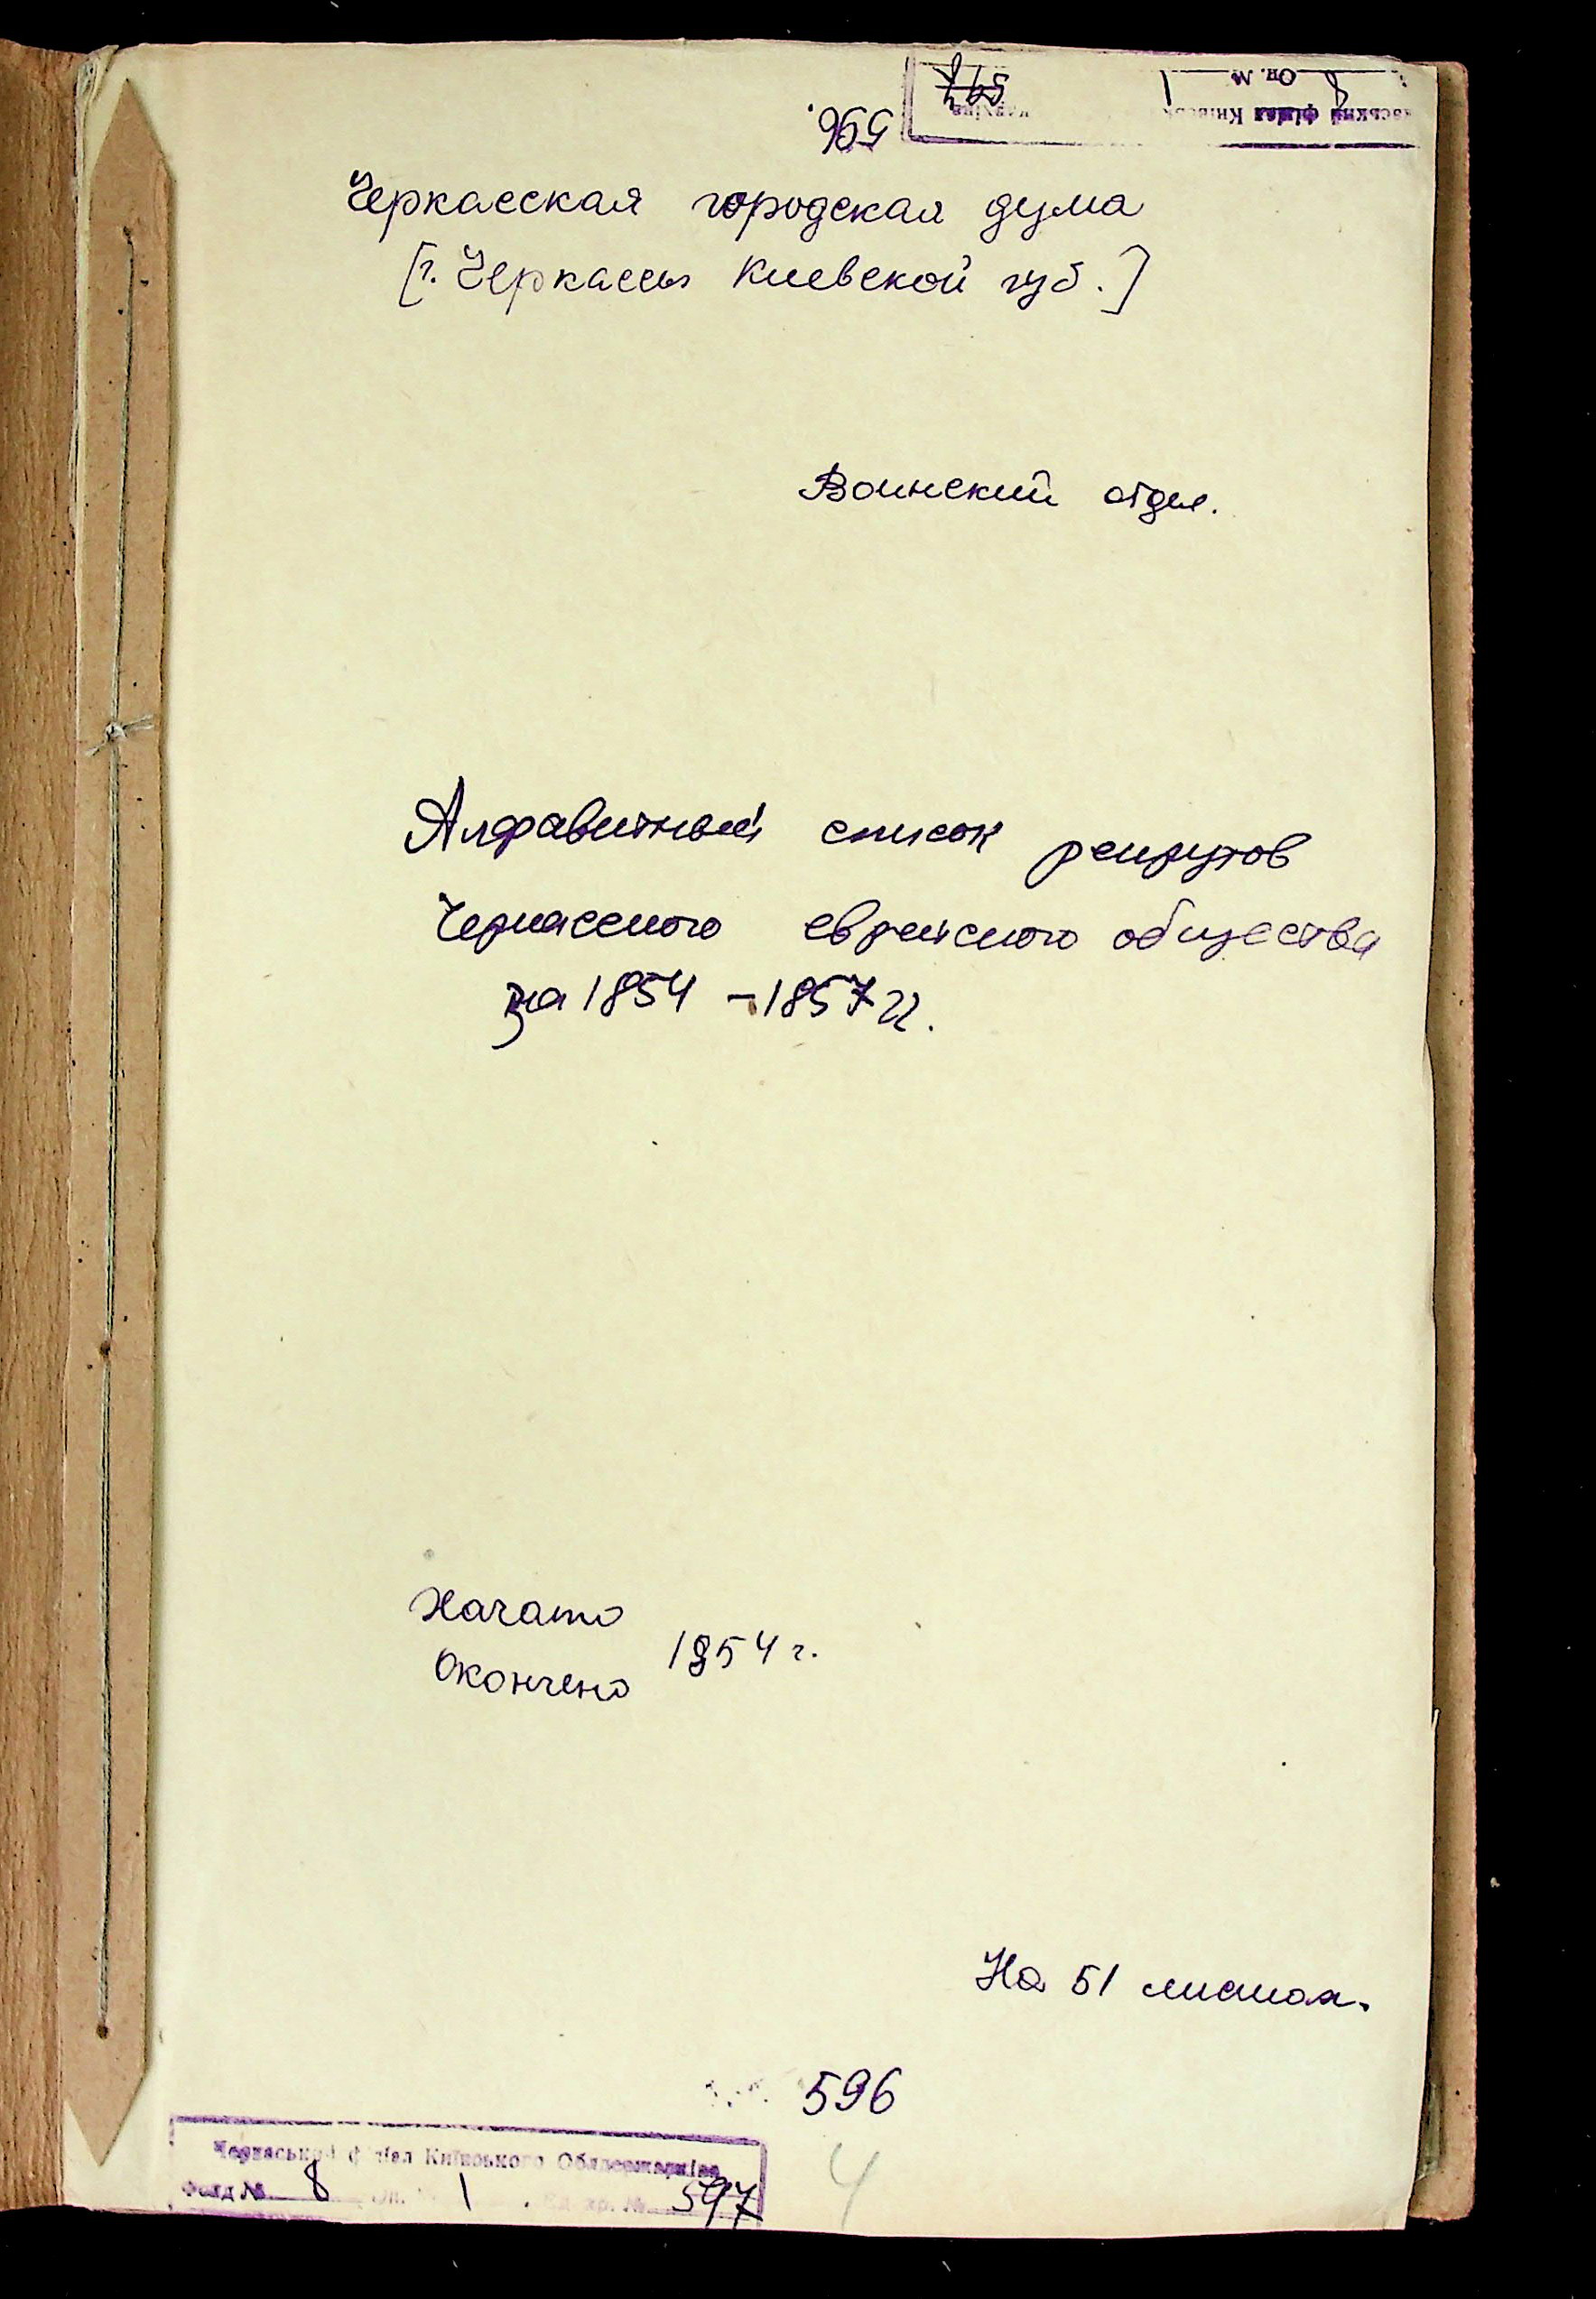 596.
Черкасская городская дума
[г. Черкассы Киевской губ.]
Воинский отдел.
Алфавитный список рекрутов
Черкасского еврейского общества
за 1854 - 1857 гг.
Начато
1854 г.
Окончено
На 51 листах.
596
Черкаський філіал Київського Облдержархіва
Фонд № 8 Оп. 1 597
4